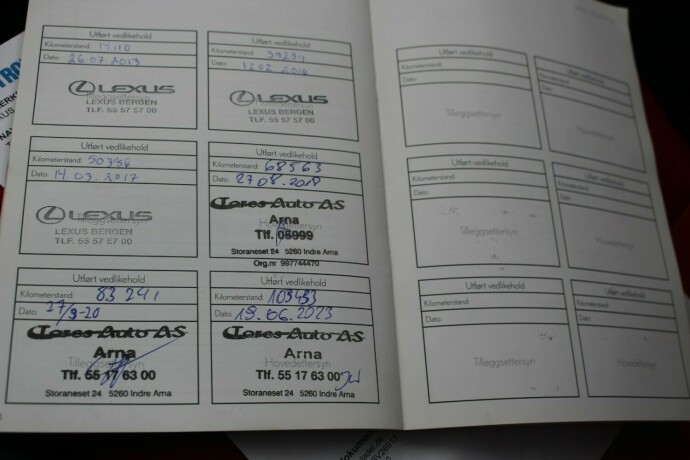 Utført vedlikehold
Kilometerstand: 14110
Dato: 26.07.2013
Tilleggsettersyn
LEXUS
LEXUS BERGEN
TLF. 55 57 57 00
Utført vedlikehold
Kilometerstand: 39234
Dato:
Hovedettersyn
LEXUS
LEXUS BERGEN
TLF. 55 57 57 00
Utført vedlikehold
Kilometerstand:
Dato: 14.03.2017
LEXUS
LEXUS BERGEN
TLF. 55 57 57 00
Utført vedlikehold
Kilometerstand: 68563
Dato: 27 08.2018
Tores Auto AS
Hovedettersyn
Arna
Tlf. 05999
Storaneset 24 5260 Indre Arna
Org.nr 997744470
Utført vedlikehold
Kilometerstand: 83 241
Dato: 17/9-20
Tores Auto AS
Arna
Tilleggsettersyn
Tlf. 55 17 63 00
Storaneset 24 5260 Indre Arna
Utført vedlikehold
Kilometerstand: 103493
Dato: 19.06.2023
Tores Auto AS
Arna
Hovedettersyn
Tlf. 55 17 63 00
Storaneset 24 5260 Indre Arna
Utført vedlikehold
Kilometerstand:
Dato:
Tilleggsettersyn
Utført vedlikehold
Kilometerstand:
Dato:
Hovedettersyn
Utført vedlikehold
Kilometerstand:
Dato:
Tilleggsettersyn
Utført vedlikehold
Kilometerstand:
Dato:
Hovedettersyn
Utført vedlikehold
Kilometerstand:
Dato:
Tilleggsettersyn
Utført vedlikehold
Kilometerstand:
Dato:
Hovedettersyn